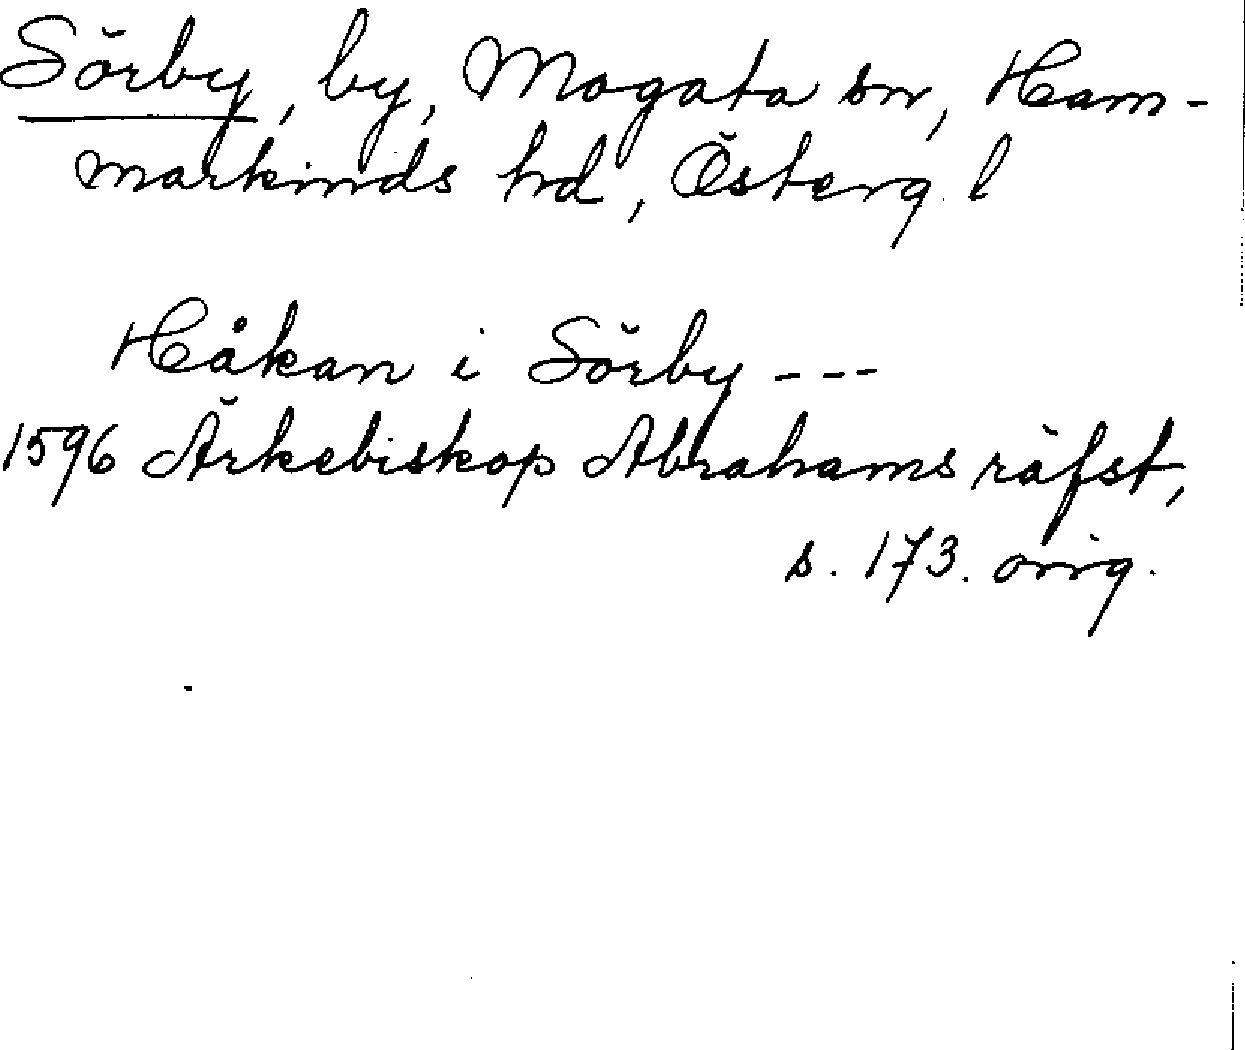 Sörby, by, Mogata sn, Ham-
markinds hd, Österg. l
Håkan i Sörby ---
1596 Ärkebiskop Abrahams räfst,
s. 173. orig.